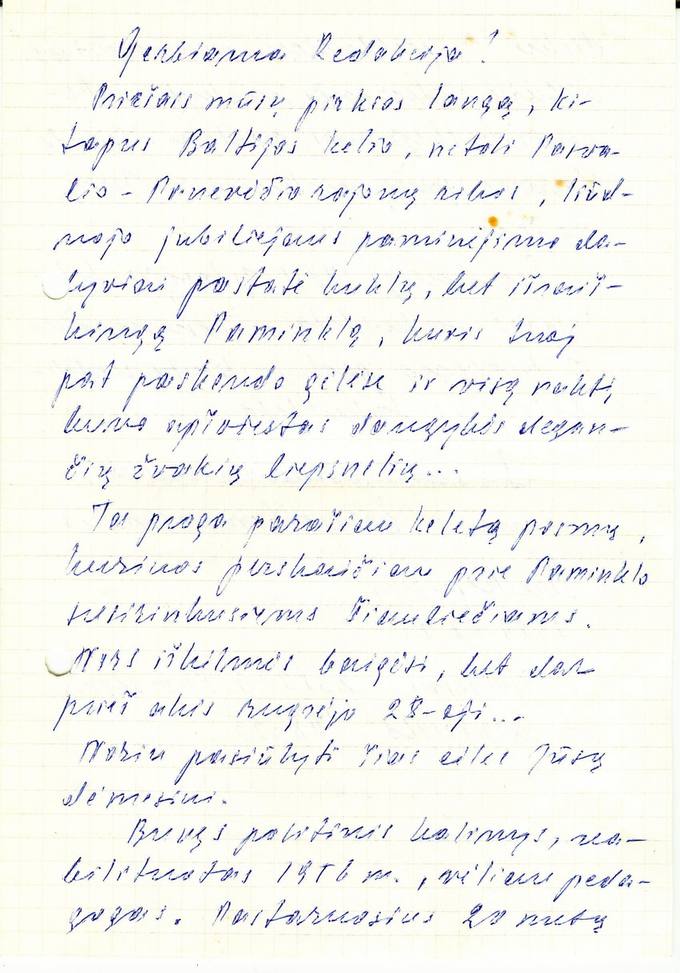 Gerbiama Redakcija!
Priešais mūsų pirkios langą, ki-
tapus Baltijos kelio, netoli Pasva-
lio - Panevėžio rajonų ribos, liūd-
nojo jubiliejaus paminėjimo da-
lyviai pastatė kuklų, bet išraiš-
kingą Paminklą, kuris tuoj
pat paskendo gėlėse ir visą naktį
buvo apšviestas daugybės degan-
čių žvakių liepsnelių...
Ta proga parašiau keletą posmų,
kuriuos perskaičiau prie Paminklo
susirinkusiems šiauliečiams.
Nors iškilmės baigėsi, bet dar
prieš akis rugsėjo 28-oji...
Noriu pasiūlyti šias eiles Jūsų
dėmesiui.
Buvęs politinis kalinys, rea-
bilituotas 1956 m., vėliau peda-
gogas. Pastaruosius 20 metų